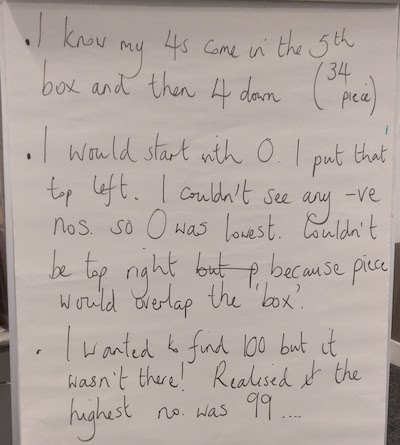 . I know my 4s come in the 5th
box and then 4 down (34 piece)
. I would start with 0. I put that
top left. I couldn't see any -ve
nos. so 0 was lowest. Couldn't
be top right but p because piece
would overlap the 'box'.
. I wanted to find 100 but it
wasn't there! Realised the
highest no. was 99....